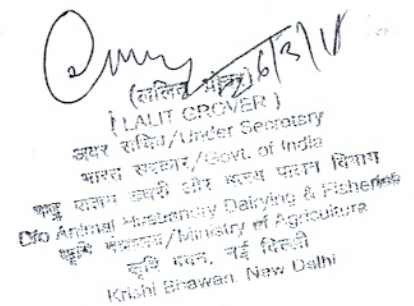 6/3/18
(ललित ग्रोवर)
(LALIT GROVER)
अवर सचिव/Under Secretary
भारत सरकार/Govt. of India
पशु पालन डेयरी और मत्स्य पालन विभाग
D/o Animal Husbandry Dairying & Fisheries
कृषि मंत्रालय/Ministry of Agriculture
कृषि भवन, नई दिल्ली
Krishi Bhawan, New Delhi